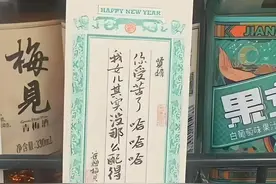 梅見
青梅酒
HAPPY NEW YEAR
贤婿
你受苦了 哈哈哈
我女儿其实没那么配得
JIAN
果
白葡萄味